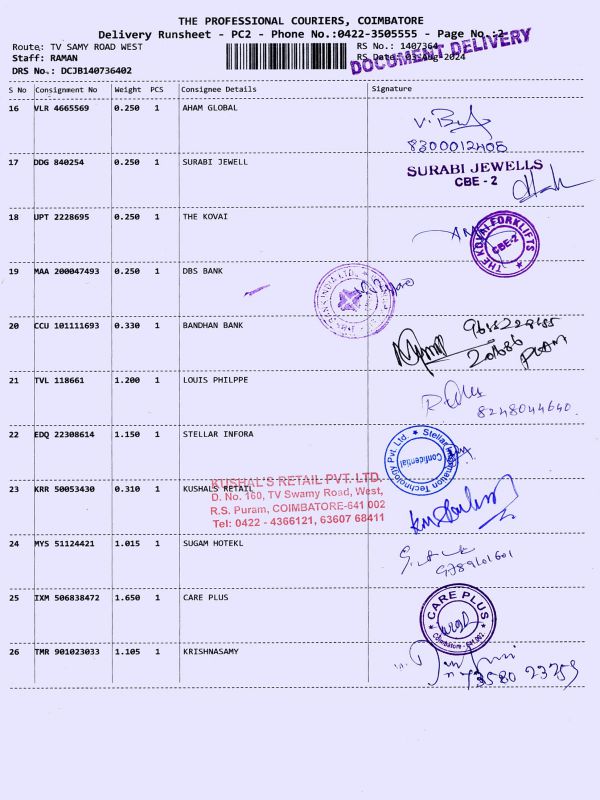 THE PROFESSIONAL COURIERS, COIMBATORE
Delivery Runsheet - PC2 - Phone No.:0422-3505555 - Page No.:2
Route: TV SAMY ROAD WEST
RS No.: 1407364
DOCUMENT DELIVERY
Staff: RAMAN
RS Date: 03-Aug-2024
DRS No.: DCJB140736402
S No Consignment No Weight PCS Consignee Details Signature
16 VLR 4665569 0.250 1 AHAM GLOBAL
8300012405
17 DDG 840254 0.250 1 SURABI JEWELL
SURABI JEWELLS
CBE - 2
18 UPT 2228695 0.250 1 THE KOVAI
THE KOVAI FORKLIFTS
CBE-2
19 MAA 200047493 0.250 1 DBS BANK
20 CCU 101111693 0.330 1 BANDHAN BANK
21 TVL 118661 1.200 1 LOUIS PHILPPE
8248044640
22 EDQ 22308614 1.150 1 STELLAR INFORA
Stellar Information Technology Pvt. Ltd.
Confidential
23 KRR 50053430 0.310 1 KUSHALS RETAIL
KUSHAL'S RETAIL PVT. LTD.
D. No. 160, TV Swamy Road, West,
R.S. Puram, COIMBATORE-641 002
Tel: 0422 - 4366121, 63607 68411
24 MYS 51124421 1.015 1 SUGAM HOTEKL
9789101601
25 IXM 506838472 1.650 1 CARE PLUS
CARE PLUS
Coimbatore - 641 002
26 TMR 901023033 1.105 1 KRISHNASAMY